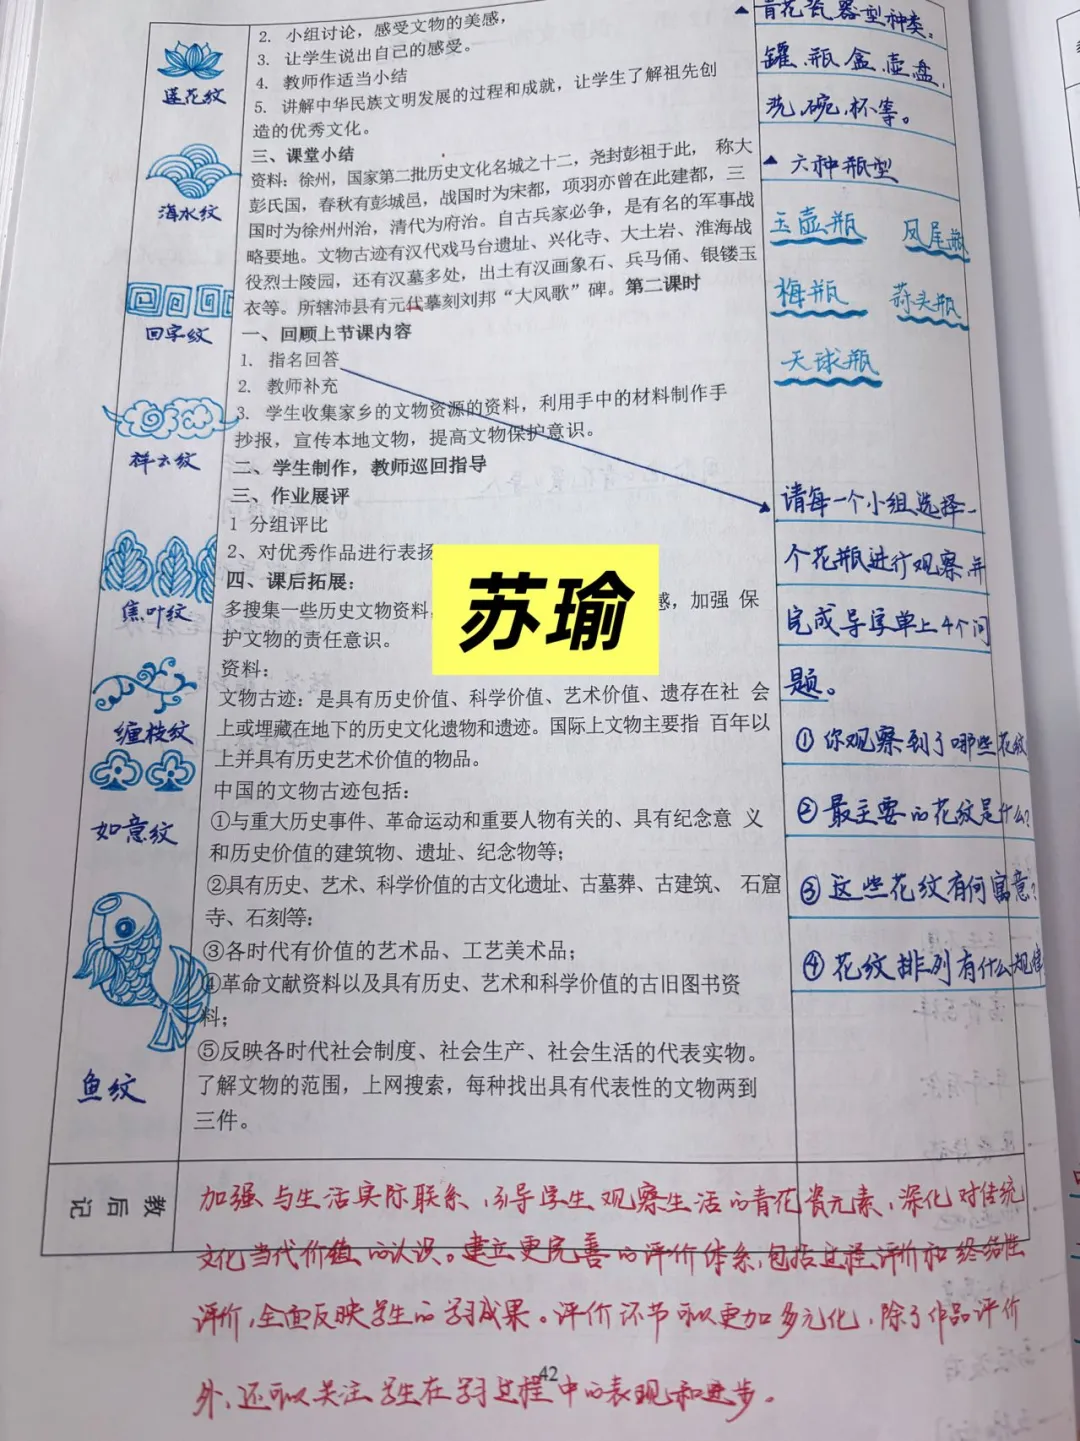 莲花纹
海水纹
回字纹
祥云纹
蕉叶纹
缠枝纹
如意纹
鱼纹
2. 小组讨论，感受文物的美感，
3. 让学生说出自己的感受。
4. 教师作适当小结
5. 讲解中华民族文明发展的过程和成就，让学生了解祖先创
造的优秀文化。
三、课堂小结
资料：徐州，国家第二批历史文化名城之十二，尧封彭祖于此， 称大
彭氏国，春秋有彭城邑，战国时为宋都，项羽亦曾在此建都，三
国时为徐州州治，清代为府治。自古兵家必争，是有名的军事战
略要地。文物古迹有汉代戏马台遗址、兴化寺、大土岩、淮海战
役烈士陵园，还有汉墓多处，出土有汉画象石、兵马俑、银镂玉
衣等。所辖沛县有元代摹刻刘邦“大风歌”碑。第二课时
一、回顾上节课内容
1. 指名回答
2. 教师补充
3. 学生收集家乡的文物资源的资料，利用手中的材料制作手
抄报，宣传本地文物，提高文物保护意识。
二、学生制作，教师巡回指导
三、作业展评
1 分组评比
2、对优秀作品进行表扬
四、课后拓展：
多搜集一些历史文物资料， 感，加强 保
护文物的责任意识。
资料：
文物古迹：是具有历史价值、科学价值、艺术价值、遗存在社 会
上或埋藏在地下的历史文化遗物和遗迹。国际上文物主要指 百年以
上并具有历史艺术价值的物品。
中国的文物古迹包括：
①与重大历史事件、革命运动和重要人物有关的、具有纪念意 义
和历史价值的建筑物、遗址、纪念物等；
②具有历史、艺术、科学价值的古文化遗址、古墓葬、古建筑、 石窟
寺、石刻等；
③各时代有价值的艺术品、工艺美术品；
④革命文献资料以及具有历史、艺术和科学价值的古旧图书资
料；
⑤反映各时代社会制度、社会生产、社会生活的代表实物。
了解文物的范围，上网搜索，每种找出具有代表性的文物两到
三件。
苏瑜
青花瓷器型种类：
罐、瓶、盒、壶、盘、
洗、碗、杯等。
▲ 六种瓶型
玉壶瓶 凤尾瓶
梅瓶 蒜头瓶
天球瓶
请每一个小组选择一
个花瓶进行观察,并
完成导学单上4个问
题。
①你观察到了哪些花纹
②最主要的花纹是什么？
③这些花纹有何寓意？
④花纹排列有什么规律
教后记
加强与生活实际联系，引导学生观察生活的青花瓷元素，深化对传统
文化当代价值的认识。建立更完善的评价体系，包括过程评价和终结性
评价,全面反映学生的学习成果。评价环节可以更加多元化，除了作品评价
外，还可以关注学生在学习过程中的表现和进步。
42